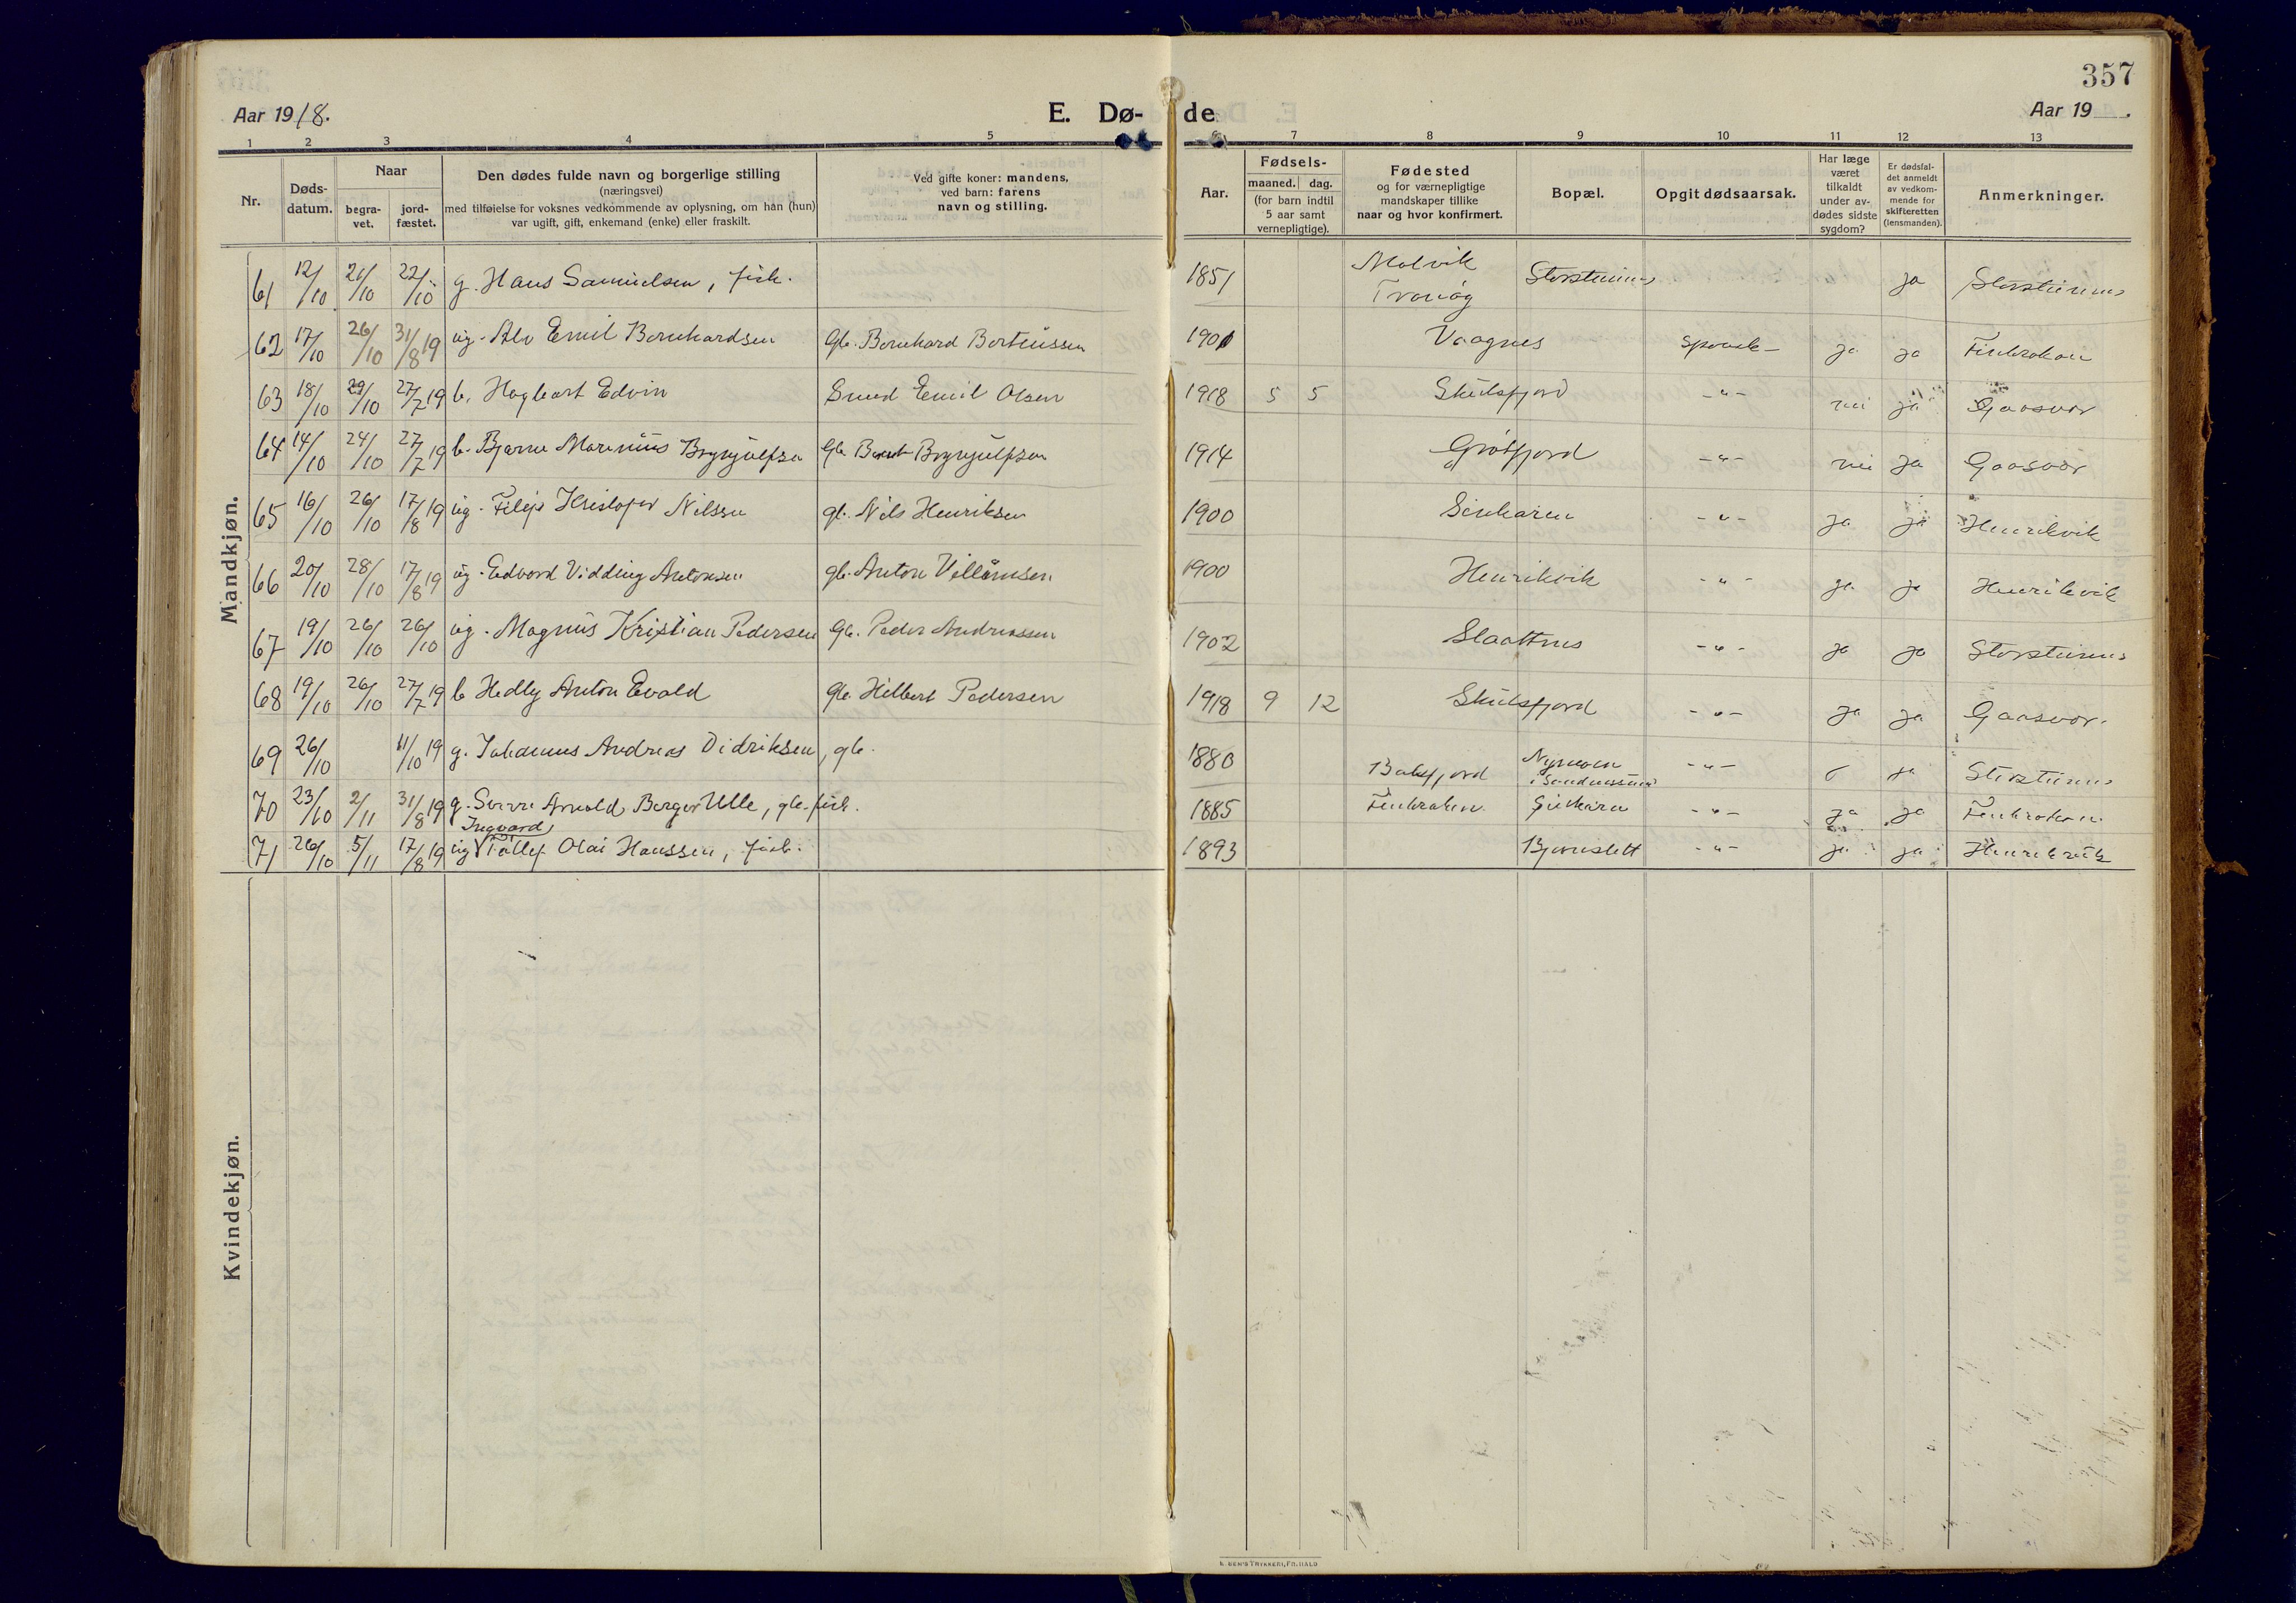 357
Aar 1918.
E. Dø-de
Aar 19 .
1 2 3 4 5 6 7 8 9 10 11 12 13
Nr.
Døds-
datum.
Naar
begra-
vet.
jord-
fæstet.
Den dødes fulde navn og borgerlige stilling
(næringsvei)
med tilføielse for voksnes vedkommende av oplysning, om han (hun)
var ugift, gift, enkemand (enke) eller fraskilt.
Ved gifte koner: mandens,
ved barn: farens
navn og stilling.
Aar.
Fødsels-
maaned. dag.
(for barn indtil
5 aar samt
vernepligtige).
Fødested
og for værnepligtige
mandskaper tillike
naar og hvor konfirmert.
Bopæl.
Opgit dødsaarsak.
Har læge
været
tilkaldt
under av-
dødes sidste
sygdom?
Er dødsfal-
det anmeldt
av vedkom-
mende for
skifteretten
(lensmanden).
Anmerkninger.
Mandkjøn.
61 12/10 21/10 22/10 g. Hans Samuelsen, fisk. 1851 Malvik Storsteinnes ja Storsteinnes
62 17/10 26/10 31/8 19 ug. Alv Emil Bernhardsen Gb. Bernhard Berteussen 1901 Vaagnes spansk- ja ja Finkroken
63 18/10 29/10 27/7 19 b. Hagbart Edvin Emil Olsen 1918 5 5 Skulsfjord -"- nei ja Gaasvær
64 14/10 24/10 27/7 19 b. Bjarne Marenius Brynjulfsen Gb. Bernt Brynjulfsen 1914 Grøtfjord -"- nei ja Gaasvær
65 16/10 26/10 17/8 19 ug. Filip Kristofer Nilssen gb. Nils Henriksen 1900 -"- ja ja Henrikvik
66 20/10 28/10 17/8 19 ug. Edvard Vidding Antonsen gb. Anton Villumsen 1900 Henrikvik -"- ja ja Henrikvik
67 19/10 26/10 26/10 ug. Magnus Kristian Pedersen Gb. Peder Andreassen 1902 Slaattnes -"- ja ja Storsteinnes
68 19/10 26/10 27/7 19 b Hedly Anton Evald Gb. Hilbert Pedersen 1918 9 12 Skulsfjord -"- ja ja Gaasvær.
69 26/10 11/10 19 g. Johannes Andreas Didriksen, gb. 1880 Balsfjord -"- ja Storsteinnes
70 23/10 2/11 31/8 19 g. Sverre Arnold Berger Ulle, gb. fisk. 1885 Finkroken -"- ja ja Finkroken.
Ingvard
71 26/10 5/11 17/8 19 ug Tollef Olai Hanssen, fisk. 1893 Bjørnslett -"- ja ja Henrikvik
Kvindekjøn.